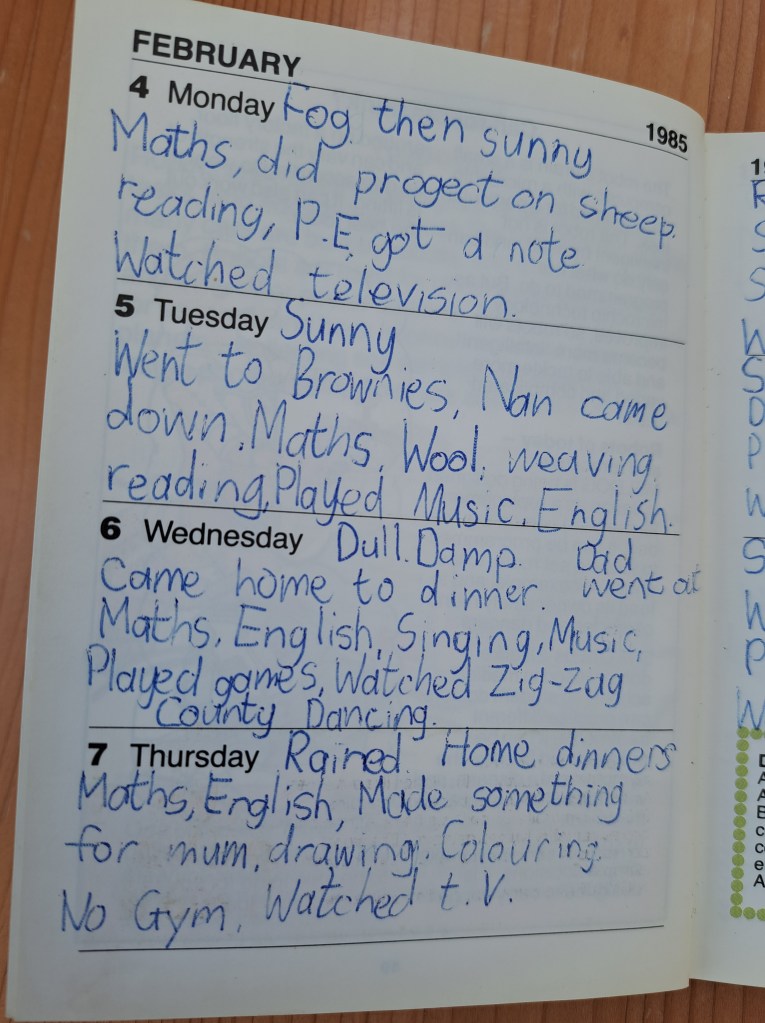 FEBRUARY
1985
4 Monday Fog then sunny
Maths, did progect on sheep.
reading, P.E, got a note
Watched television.
5 Tuesday Sunny
Went to Brownies, Nan came
down. Maths, Wool. weaving.
reading, Played Music. English.
6 Wednesday Dull. Damp. Dad
Came home to dinner. went at
Maths, English, Singing, Music,
Played games, Watched Zig-Zag
County Dancing.
7 Thursday Rained. Home dinners
Maths, English, Made something
for mum, drawing. Colouring.
No Gym, Watched t.V.